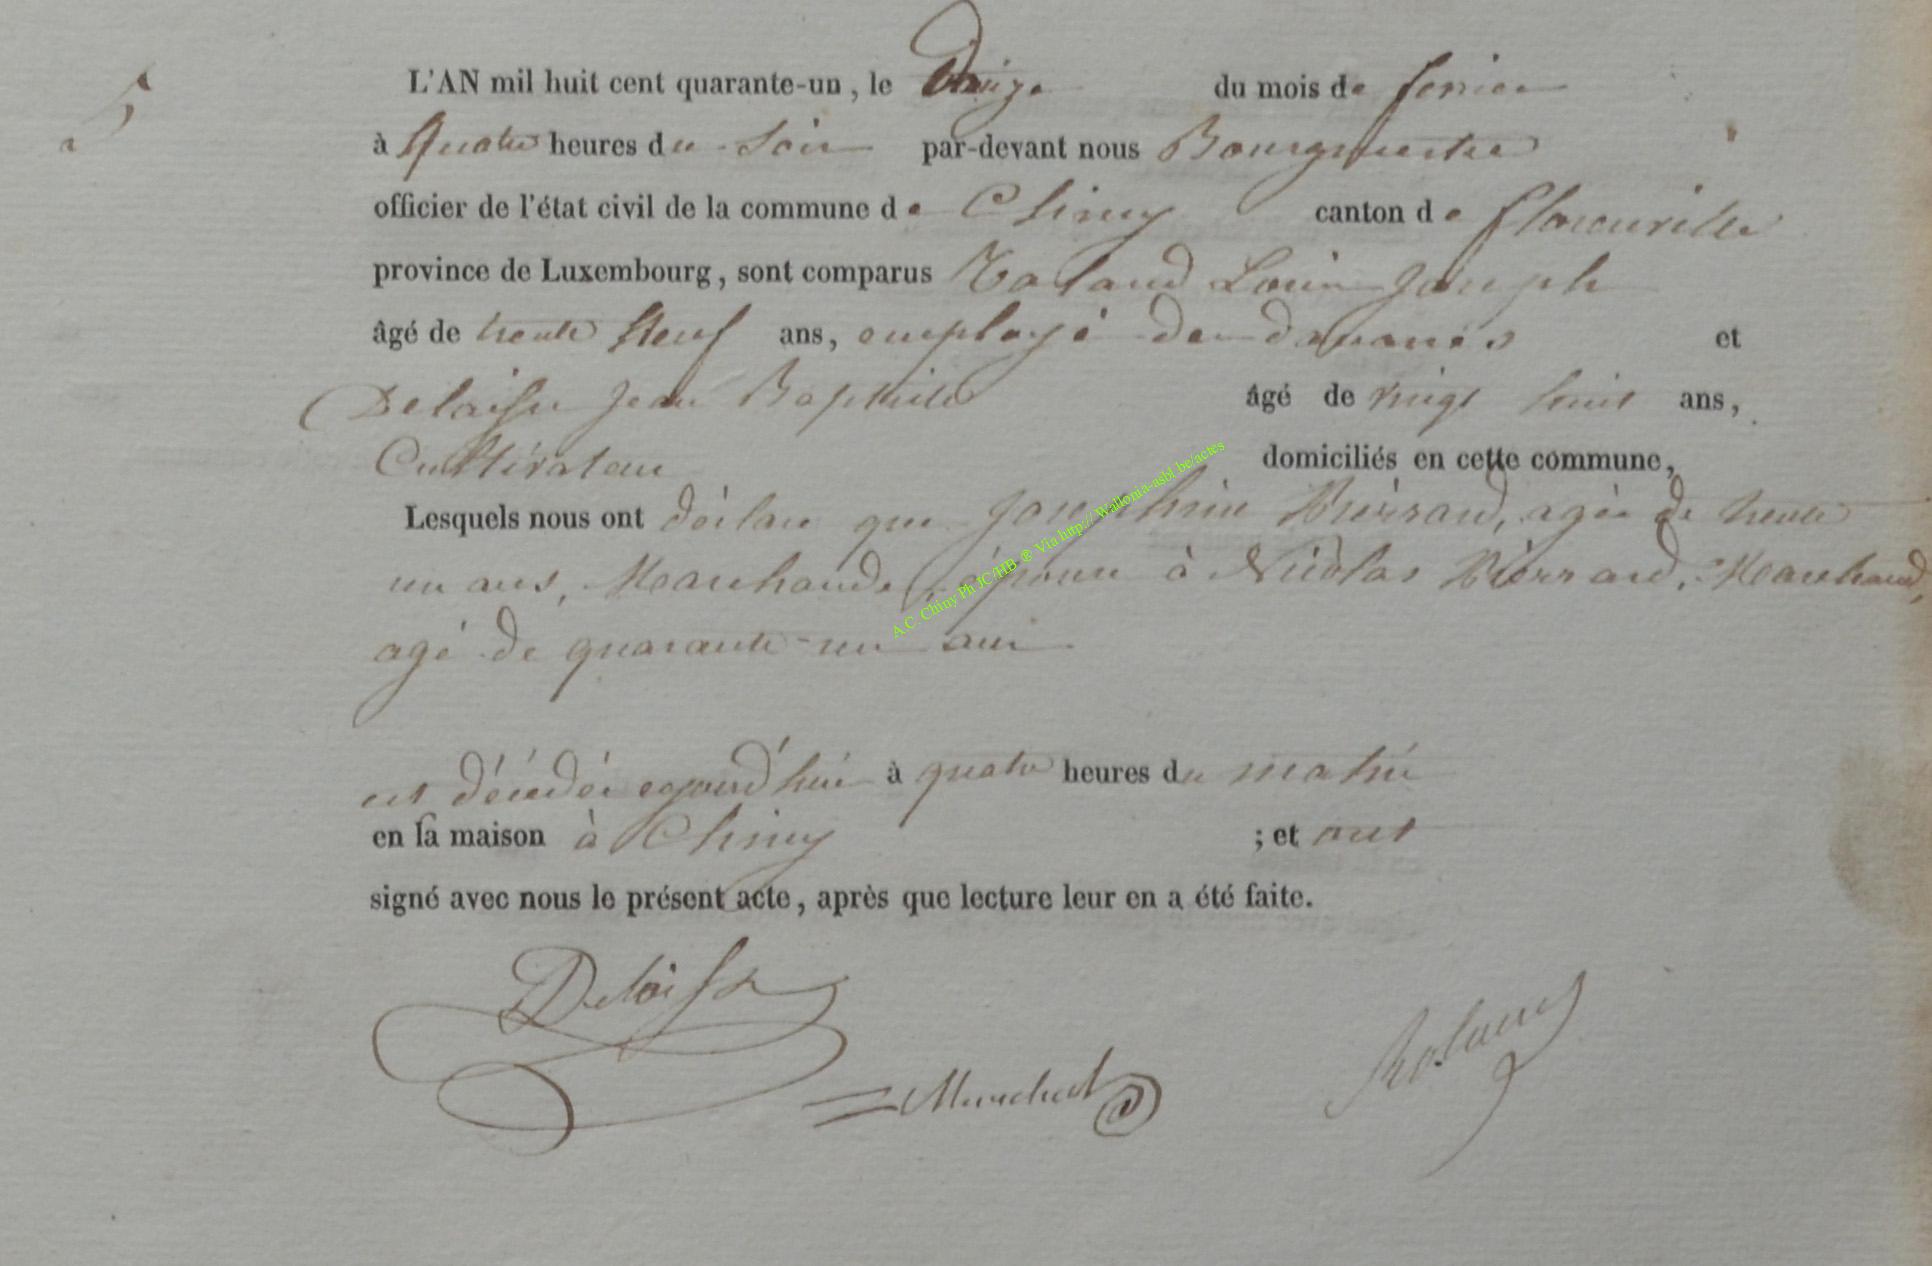 5
L'AN mil huit cent quarante-un, le du mois de fevrier
à Quatre heures du Soir par-devant nous Bourgmestre
officier de l'état civil de la commune de Chiny canton de florenville
province de Luxembourg, sont comparus Roland Louis Joseph
âgé de trente Neuf ans, employé des douanes et
Delaisse Jean Baptiste âgé de vingt huit ans,
Cultivateur domiciliés en cette commune,
Lesquels nous ont déclaré que Josephine Pierrard, agée de trente
un ans, Marchande, épouse à Nicolas Pierrard, Marchand,
agé de quarante-un ans
est décédée aujourd'hui à quatre heures du matin
en sa maison à Chiny ; et ont
signé avec nous le présent acte, après que lecture leur en a été faite.
Delaisse
Roland
A.C. Chiny Ph JC/HB ® Via http://Wallonia-asbl.be/actes